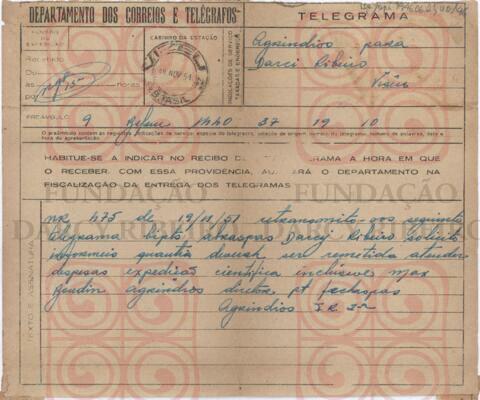 DEPARTAMENTO DOS CORREIOS E TELÉGRAFOS
TELEGRAMA
CARIMBO DA ESTAÇÃO
INDICAÇÕES DE SERVIÇO
TAXADAS E ENDERÊÇO
Recebido
De
às horas
por
NOV 51
BRASIL
Agrindios para
Darci Ribeiro
PREÂMBULO 9 Belem 1440 37 19 10
O preâmbulo contém as seguintes indicações de serviço: espécie do telegrama, estação de origem, número do telegrama, número de palavras, data e hora da apresentação.
HABITUE-SE A INDICAR NO RECIBO TELEGRAMA A HORA EM QUE
O RECEBER. COM ESSA PROVIDÊNCIA, AUXILIARÁ O DEPARTAMENTO NA
FISCALIZAÇÃO DA ENTREGA DOS TELEGRAMAS
FUNDAÇÃO
DARCY RIBEIRO
TEXTO E ASSINATURA
NR 475 de 19/11/51 retransmito-vos seguinte
telegrama bipts abraspas Darcy Ribeiro solicito
informeis quantia deverá ser remetida atender
despesas expedição cientifica inclusive Max
Boudin Agrindios diretor pt fechaspas
Agrindios I.R. 2ª